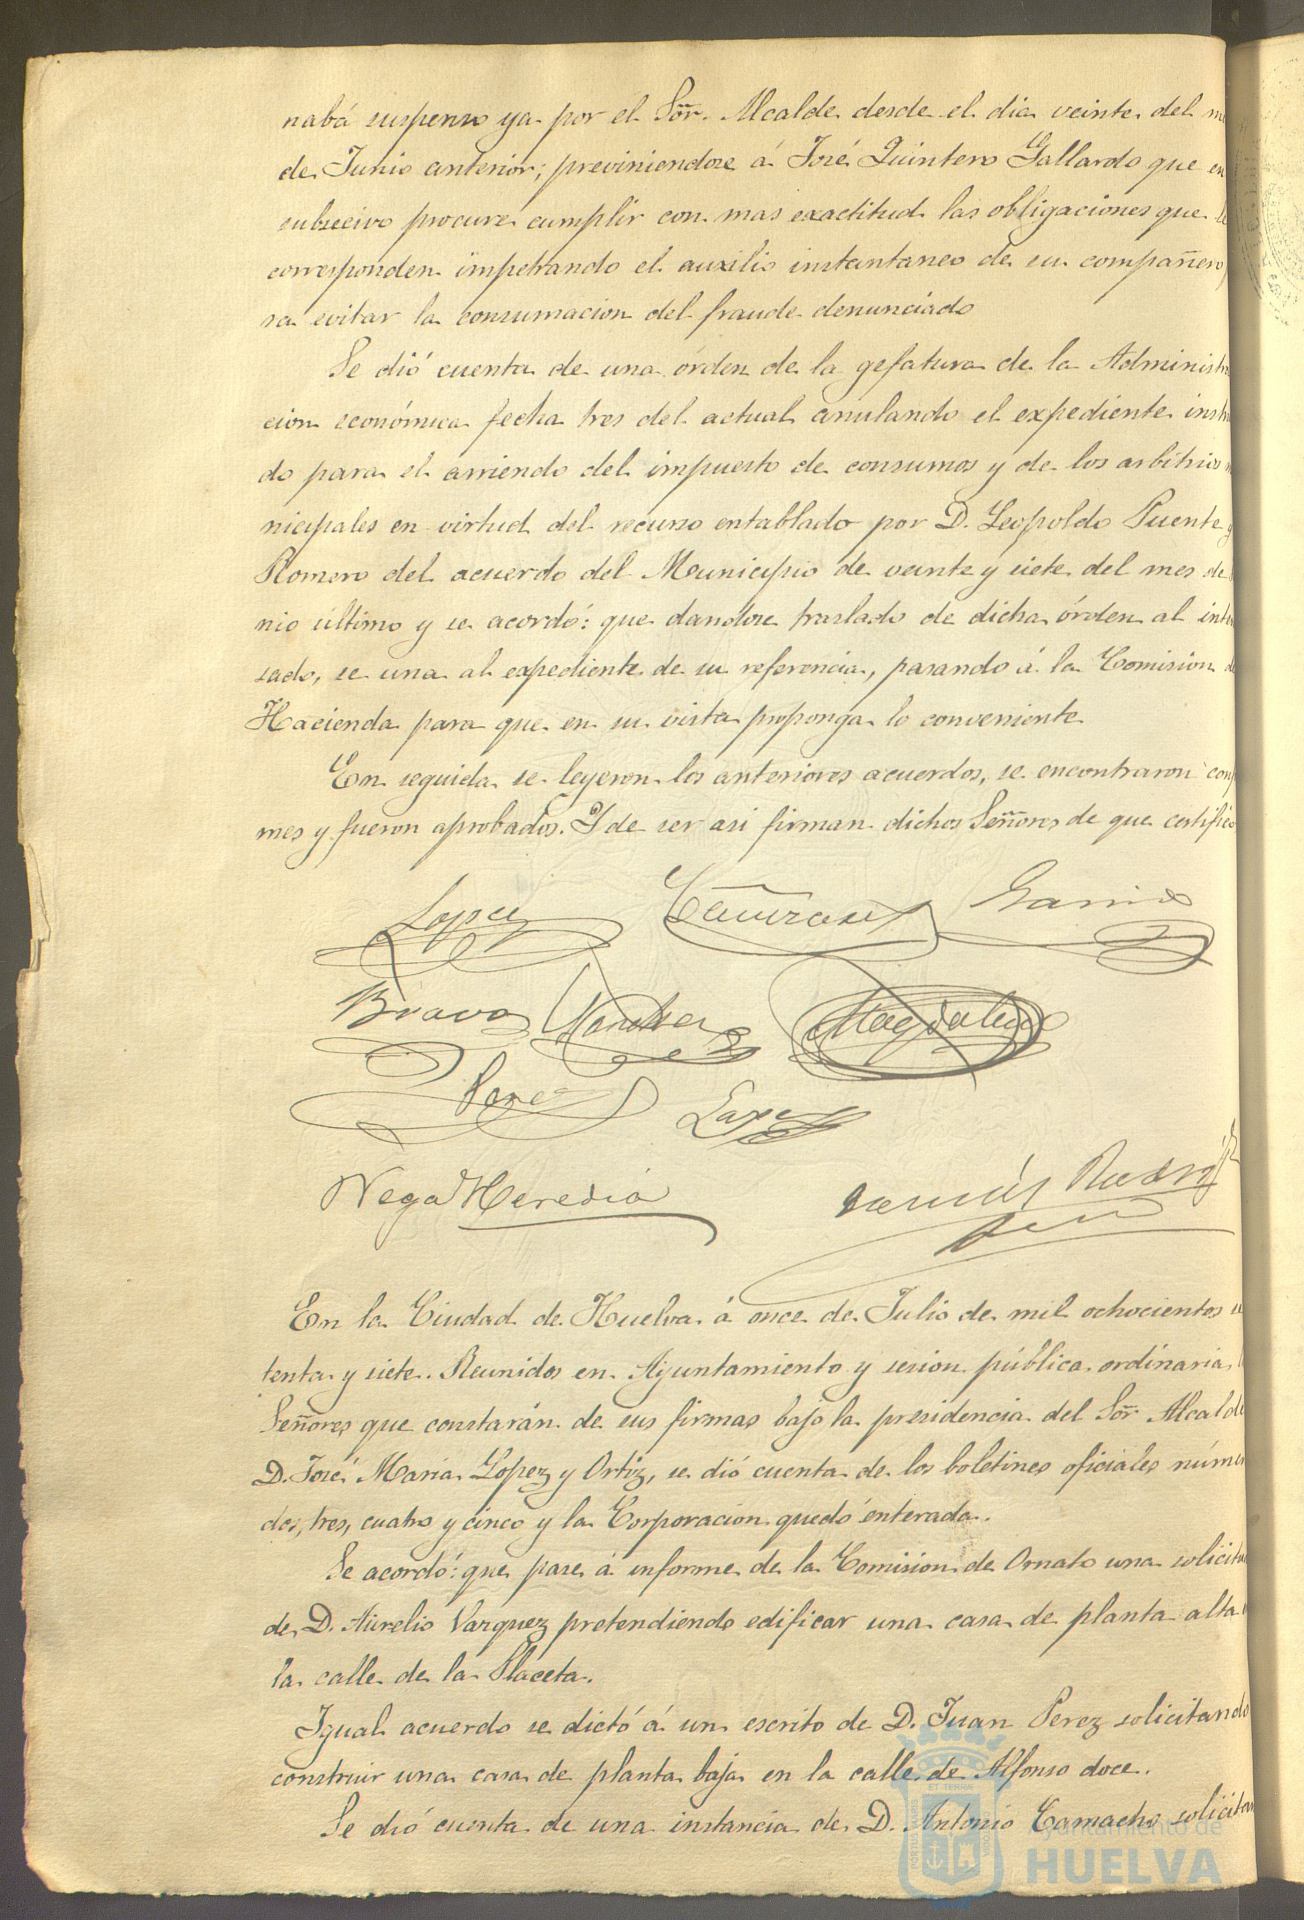 nabá suspenso ya por el Sõr. Alcalde desde el dia veinte del m
de Junio anterior; previniendose á José Quintero Gallardo que en
subsecivo procure cumplir con mas exactitud las obligaciones que le
corresponden impetrando el auxilio instantaneo de su compañero
ra evitar la consumacion del fraude denunciado
Se dió cuenta de una órden de la gefatura de la Administra
cion económica fecha tres del actual anulando el expediente instru
do para el arriendo del impuesto de consumos y de los arbitrios m
nicipales en virtud del recurso entablado por D. Leopoldo Puente y
Romero del acuerdo del Municipio de veinte y siete del mes de
nio último y se acordó: que dandose traslado de dicha órden al inte
sado, se una al expediente de su referencia, pasando á la Comision de
Hacienda para que en su vista proponga lo conveniente
En seguida se leyeron los anteriores acuerdos, se encontraron conf
mes y fueron aprobados. Y de ser asi firman dichos Señores de que certifico
Lopez Garrido
Bravo Magdaleno
Perez
Vega Heredia
En la Ciudad de Huelva á once de Julio de mil ochocientos se
tenta y siete. Reunidos en Ayuntamiento y sesion pública ordinaria l
Señores que constarán de sus firmas bajo la presidencia del Sõr. Alcalde
D. José María Lopez y Ortiz, se dió cuenta de los boletines oficiales núme
dos, tres, cuatro y cinco y la Corporacion quedó enterada.
Se acordó: que pase á informe de la Comision de Ornato una solicitu
de D. Aurelio Vazquez pretendiendo edificar una casa de planta alta
la calle de la Placeta.
Igual acuerdo se dictó á un escrito de D. Juan Perez solicitando
construir una casa de planta baja en la calle de Alfonso doce.
Se dió cuenta de una instancia de D. Antonio Camacho solicitan
Ayuntamiento de
HUELVA